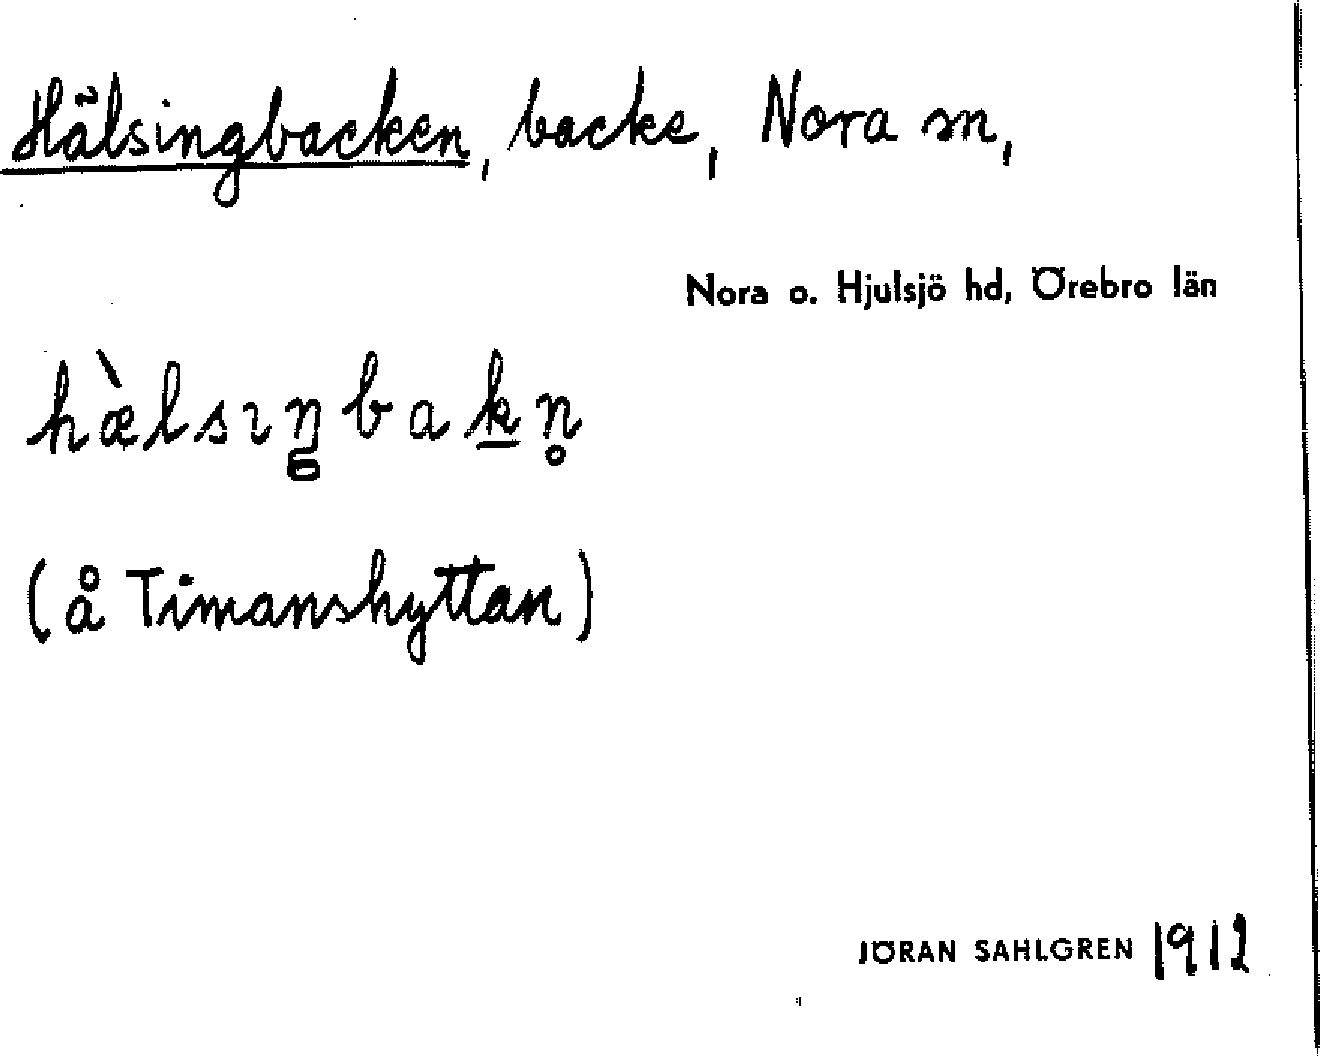 Hälsingbacken, backe, Nora sn,
Nora o. Hjulsjö hd, Örebro län
hæ̀lsıŋbak̠n̥
(å Timanshyttan)
JÖRAN SAHLGREN 1912